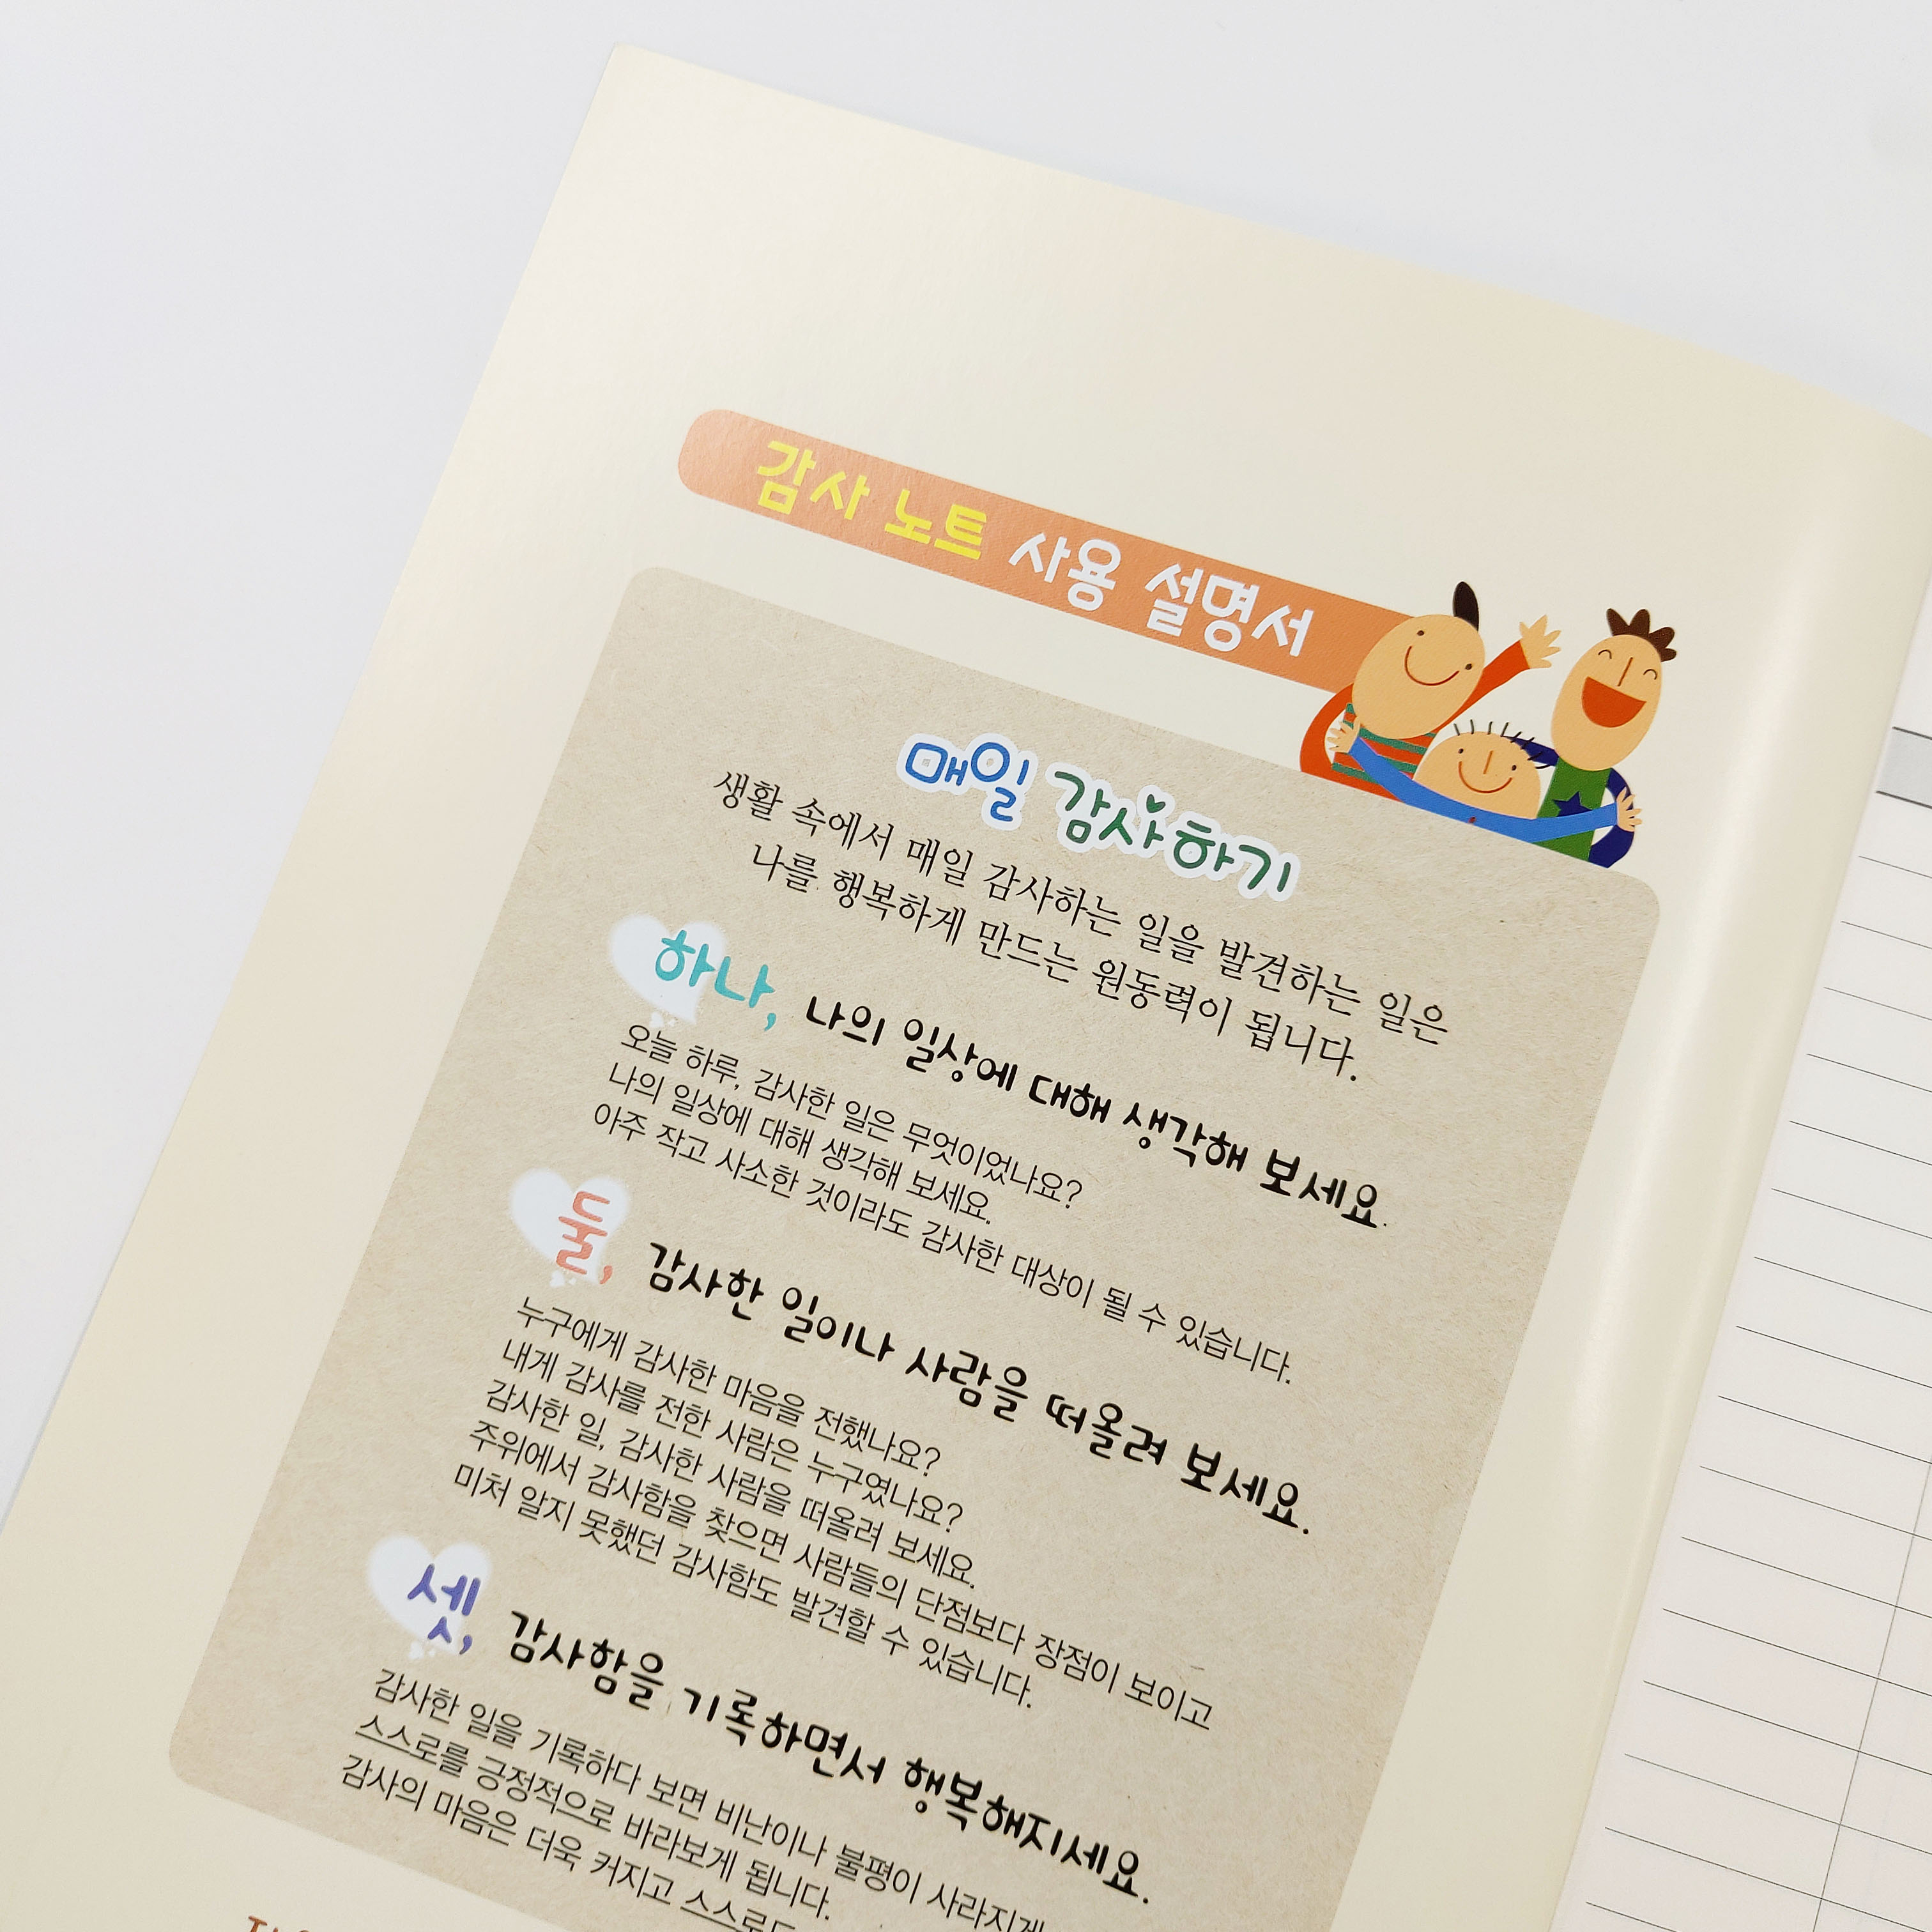 감사 노트 사용 설명서
매일 감사하기
생활 속에서 매일 감사하는 일을 발견하는 일은
나를 행복하게 만드는 원동력이 됩니다.
하나, 나의 일상에 대해 생각해 보세요.
오늘 하루, 감사한 일은 무엇이었나요?
나의 일상에 대해 생각해 보세요.
아주 작고 사소한 것이라도 감사한 대상이 될 수 있습니다.
둘, 감사한 일이나 사람을 떠올려 보세요.
누구에게 감사한 마음을 전했나요?
내게 감사를 전한 사람은 누구였나요?
감사한 일, 감사한 사람을 떠올려 보세요.
주위에서 감사함을 찾으면 사람들의 단점보다 장점이 보이고
미처 알지 못했던 감사함도 발견할 수 있습니다.
셋, 감사함을 기록하면서 행복해지세요.
감사한 일을 기록하다 보면 비난이나 불평이 사라지게
스스로를 긍정적으로 바라보게 됩니다.
감사의 마음은 더욱 커지고